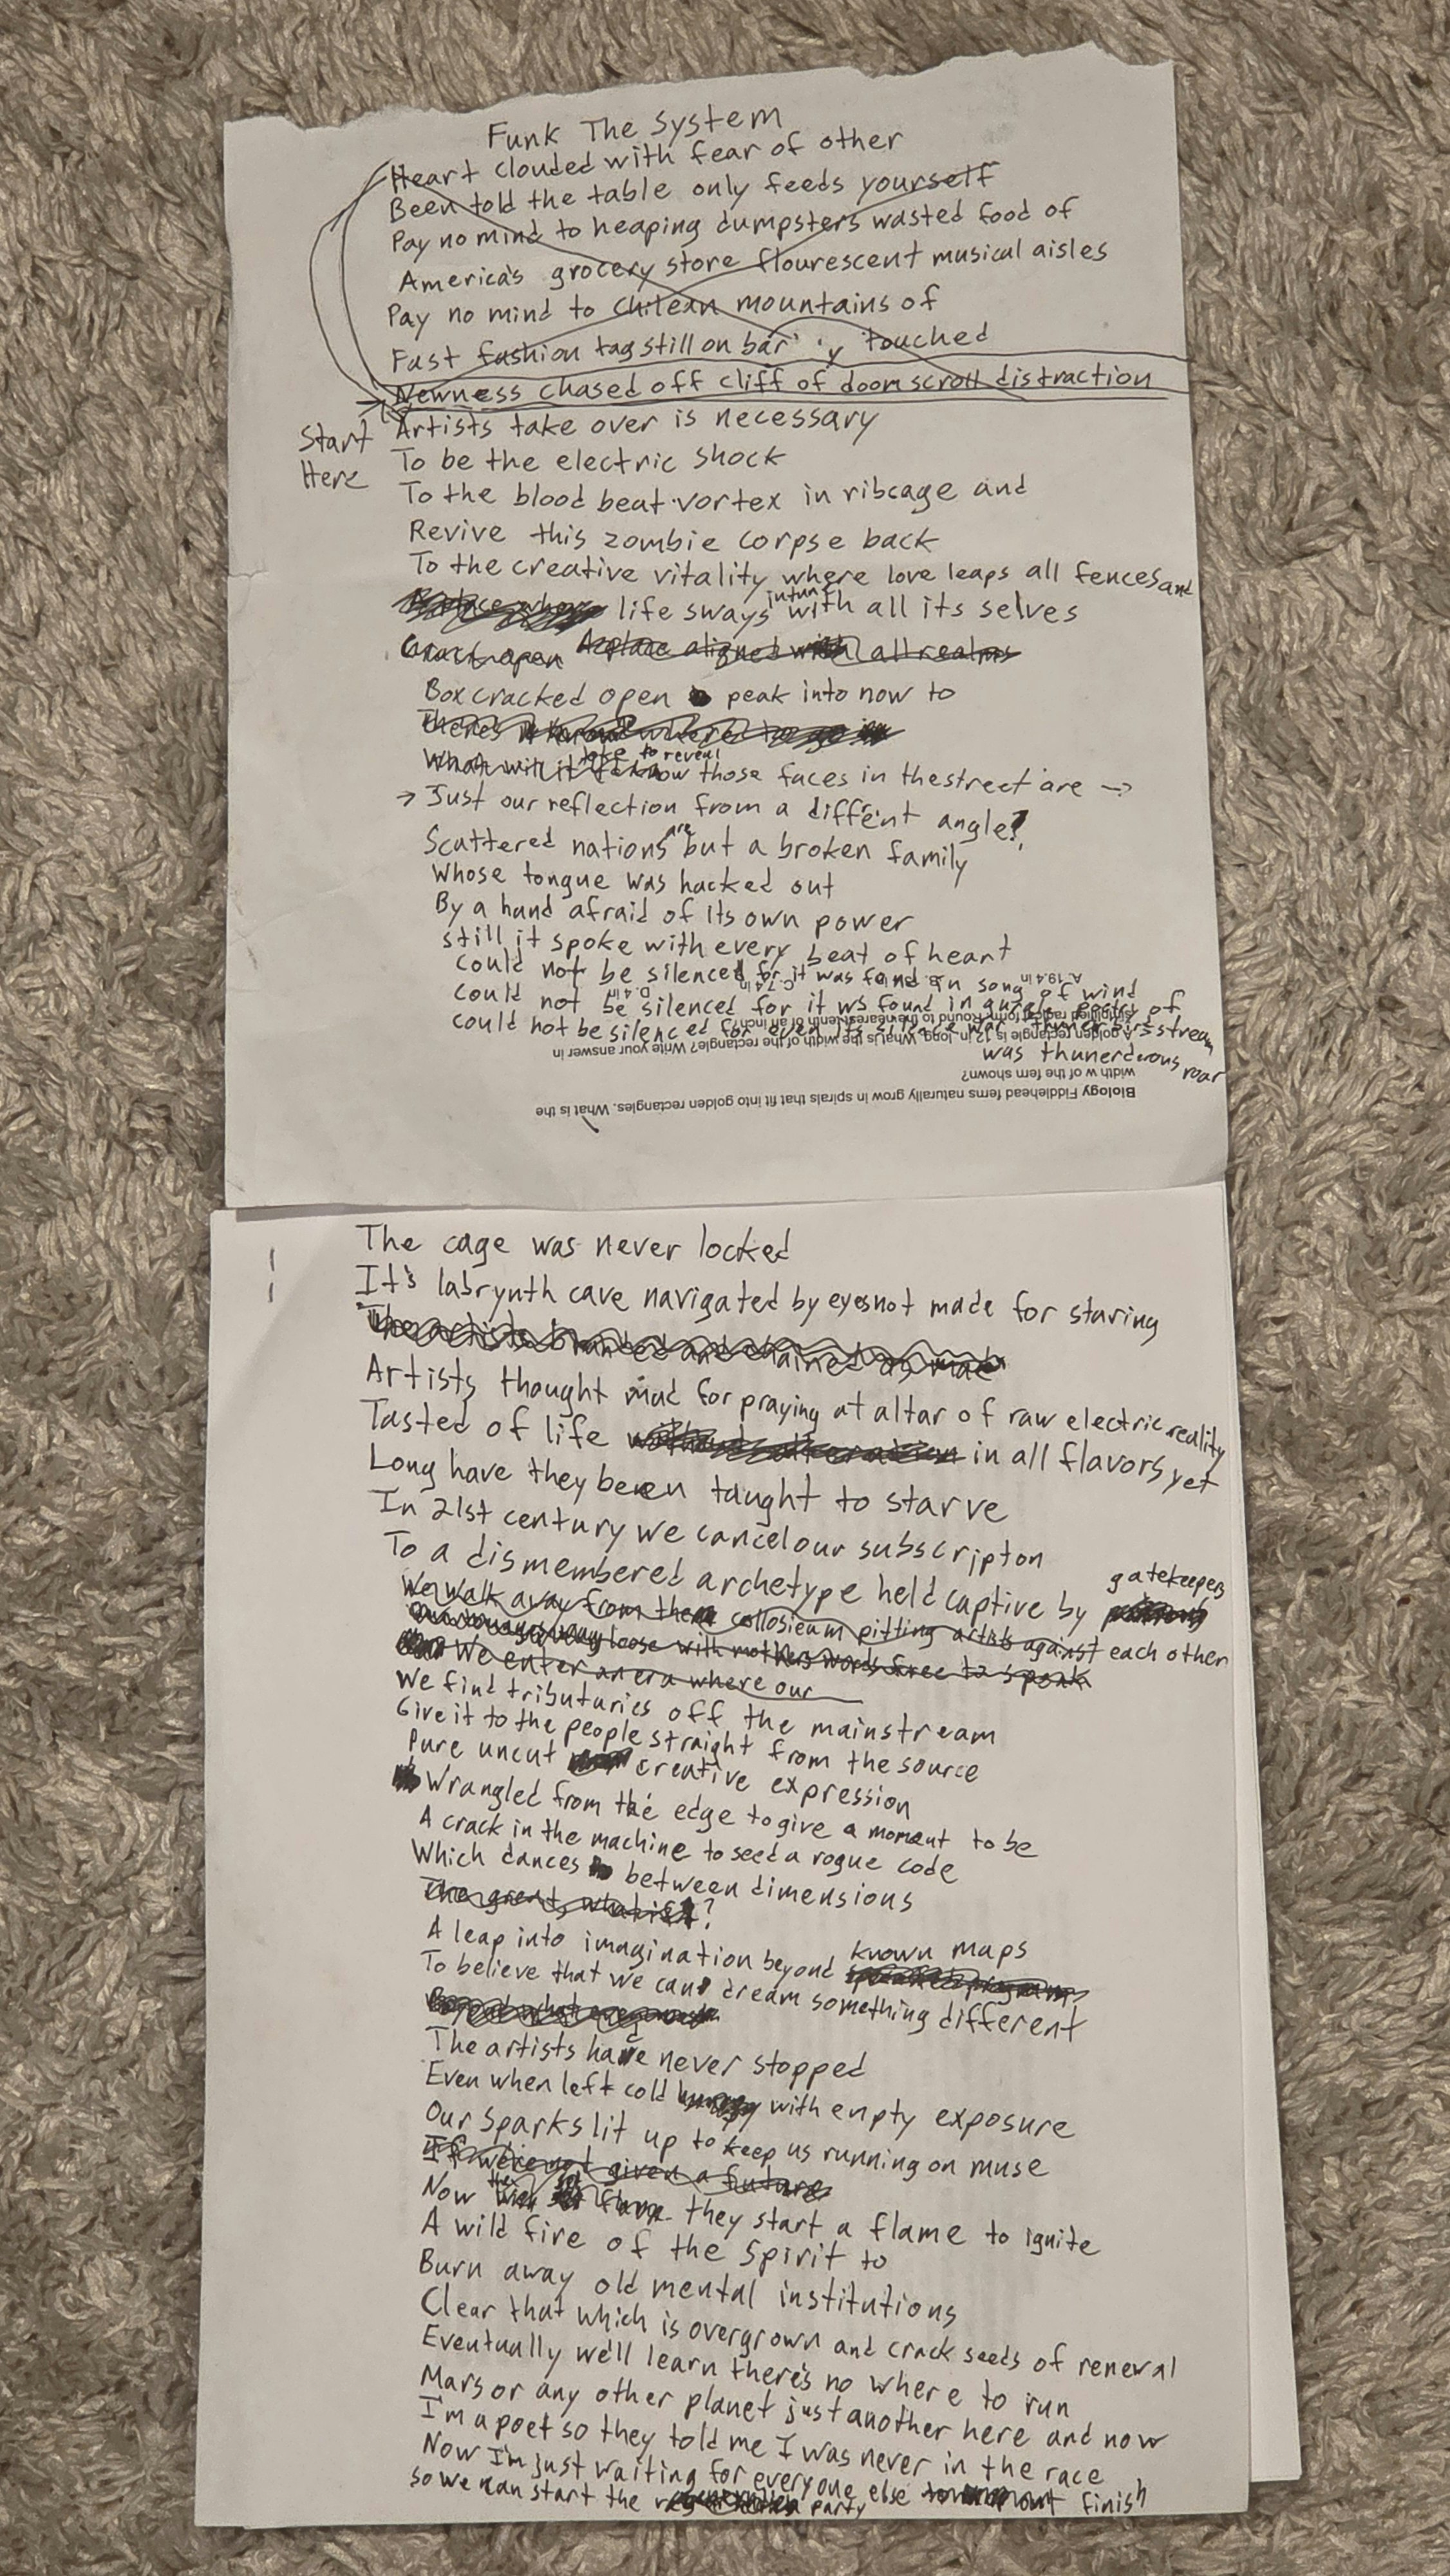 Funk The System
Heart clouded with fear of other
Been told the table only feeds yourself
Pay no mind to heaping dumpsters wasted food of
America's grocery store flourescent musical aisles
Pay no mind to chilean mountains of
Fast fashion tag still on barely touched
Newness chased off cliff of doom scroll distraction
Start Here
Artists take over is necessary
To be the electric shock
To the blood beat vortex in ribcage and
Revive this zombie corpse back
To the creative vitality where love leaps all fences and
life sways in tune with all its selves
Crack open A place aligned with all realms
Box cracked open peak into now to
What will it take to reveal how those faces in the street are →
→ Just our reflection from a diffrent angle?
Scattered nations are but a broken family
Whose tongue was hacked out
By a hand afraid of its own power
still it spoke with every beat of heart
could not be silenced for it was found in song of wind
could not be silenced for it ws found in gurgle poetry of stream
could not be silenced for even its silence was
was thunerderous roar
A. 19.4 in
C. 7.4 in
D. 4 in
Biology Fiddlehead ferns naturally grow in spirals that fit into golden rectangles. What is the
width w of the fern shown?
A golden rectangle is 12 in. long. What is the width of the rectangle? Write your answer in
simplified radical form. Round to the nearest tenth of an inch.
The cage was never locked
It's labrynth cave navigated by eyes not made for staring
The artists branded and chained as mad
Artists thought mad for praying at altar of raw electric reality
Tasted of life in all flavors yet
Long have they been taught to starve
In 21st century we cancel our subscripton
To a dismembered archetype held captive by gatekeepers
We walk away from the collosieum pitting artists against each other
We enter an era where our
We find tributaries off the mainstream
Give it to the people straight from the source
Pure uncut creative expression
Wrangled from the edge to give a moment to be
A crack in the machine to seed a rogue code
Which dances between dimensions
The great what if?
A leap into imagination beyond known maps
To believe that we can dream something different
The artists have never stopped
Even when left cold with empty exposure
Our sparks lit up to keep us running on muse
If we're not given a future
Now they start a flame to ignite
A wild fire of the spirit to
Burn away old mental institutions
Clear that which is overgrown and crack seeds of renewal
Eventually we'll learn there's no where to run
Mars or any other planet just another here and now
I'm a poet so they told me I was never in the race
Now I'm just waiting for everyone else finish
so we can start the party